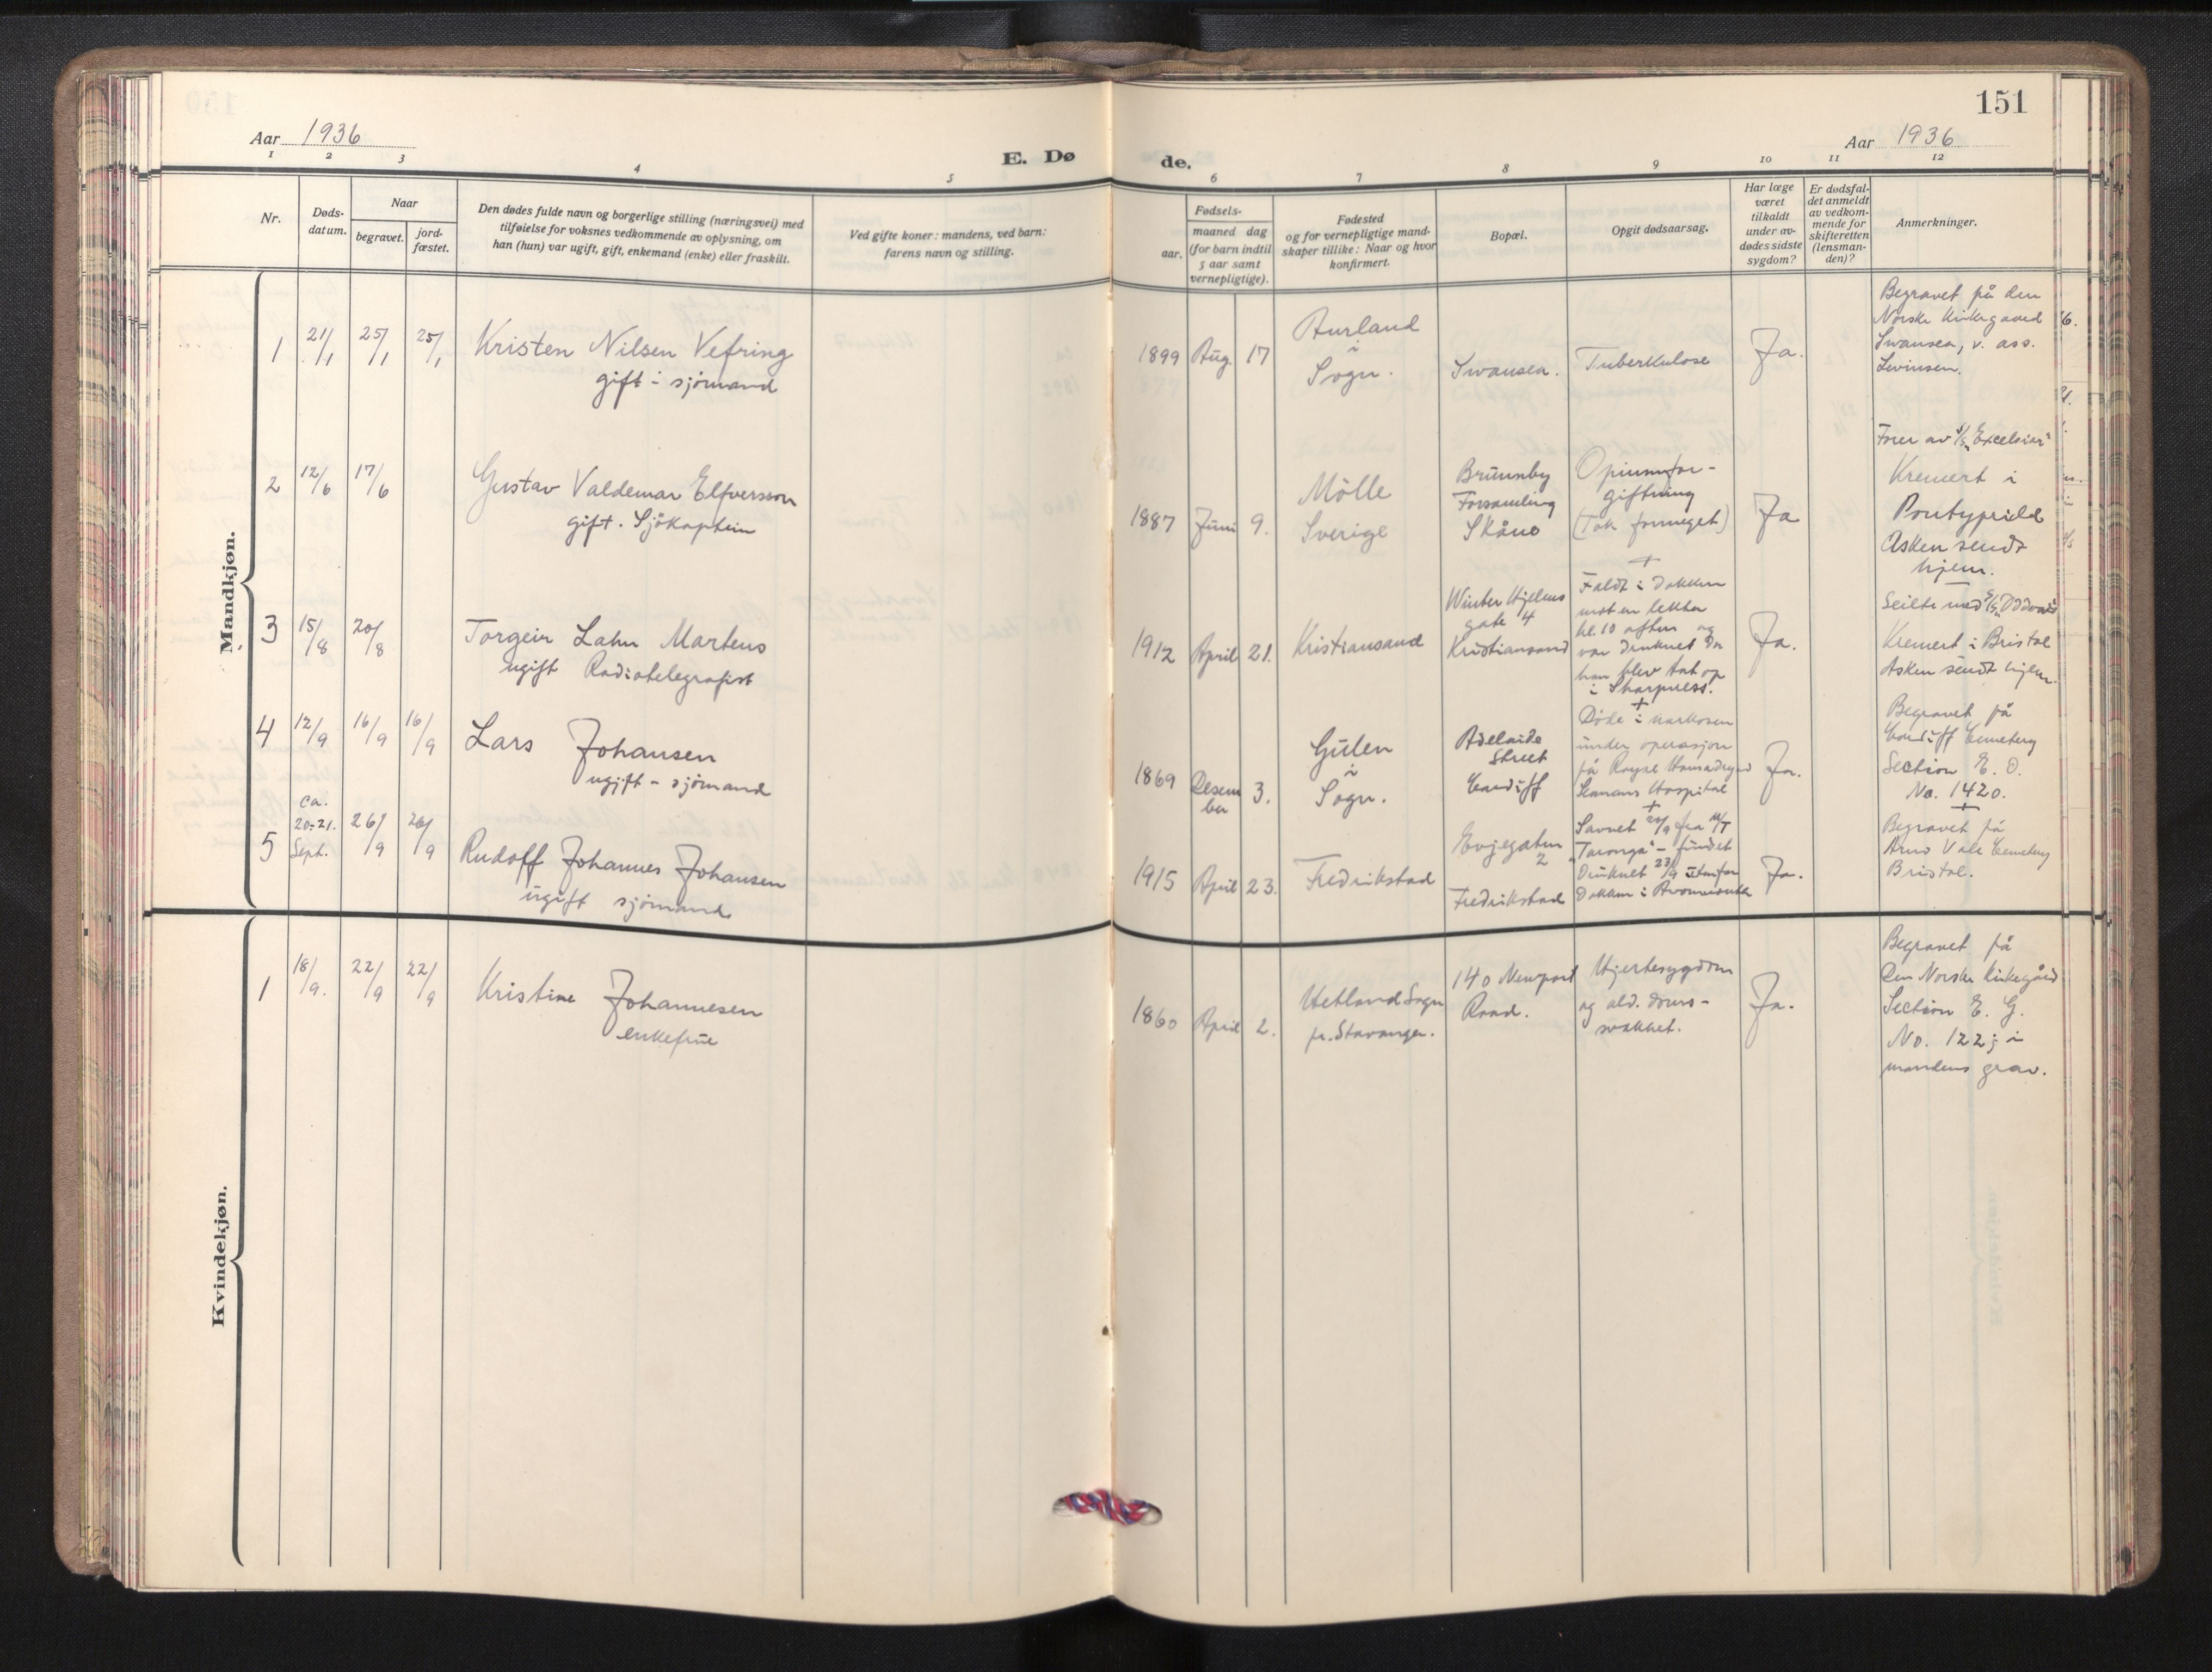 151
Aar 1936
Aar 1936
E. Dø
de.
1 2 3 4 5 6 7 8 9 10 11 12
Nr.
Døds-
datum.
Naar
begravet.
jord-
fæstet.
Den dødes fulde navn og borgerlige stilling (næringsvei) med
tilføielse for voksnes vedkommende av oplysning, om
han (hun) var ugift, gift, enkemand (enke) eller fraskilt.
Ved gifte koner: mandens, ved barn:
farens navn og stilling.
Fødsels-
aar.
maaned dag
(for barn indtil
5 aar samt
vernepligtige).
Fødested
og for vernepligtige mand-
skaper tillike: Naar og hvor
konfirmert.
Bopæl.
Opgit dødsaarsag.
Har læge
været
tilkaldt
under av-
dødes sidste
sygdom?
Er dødsfal-
det anmeldt
av vedkom-
mende for
skifteretten
(lensman-
den)?
Anmerkninger.
Mandkjøn.
1 21/1 25/1 25/1
Kristen Nilsen Vefring
gift - sjömand
1899 Aug. 17
Aurland
i
Sogn.
Swansea.
Tuberkulose
Ja.
Begravet på den
Norske Kirkegaard
Swansea, v. ass.
Levinsen.
2 12/6 17/6
Gustav Valdemar Elfversson
gift. Sjökaptein
1887 Juni 9.
Mölle
Sverige
Brünnby
Forsamling
Skåne
Opiumfor-
giftning
(Tok formeget)
Ja
Förer av S/S "Excelsior"
Kremert i
Pontypridd
Asken sendt
hjem.
3 15/8 20/8
Torgeir Lahn Martens
ugift Radiotelegrafist
1912 April 21.
Kristiansand
Winter Hjelms
gate 4
Kristiansand
Faldt i dokken
mot en lekter
kl. 10 aften og
var druknet da
han blev tat op
i Sharpness.
Ja.
Seilte med S/S "Oddvard"
Kremert i Bristol
Asken sendt hjem.
4 12/9 16/9 16/9
Lars Johansen
ugift - sjömand
1869 Desem
ber 3.
Gulen
i
Sogn.
Adelaide
Street
Cardiff
Döde i narkosen
under operasjon
på Royal Hamadryad
Seamans Hospital
Ja.
Begravet på
Cardiff Cemetery
Section E. O.
No. 1420.
5 ca.
20-21.
Sept. 26/9 26/9
Rudolf Johannes Johansen
ugift sjömand
1915 April 23.
Fredrikstad
Evjegaten
2
Fredrikstad
Savnet 20/9 fra M/T
"Taronga" - fundet
Druknet 23/9 utenfor
Dokken i Avonmouth
Ja.
Begravet på
Arno Vale Cemetery
Bristol.
Kvindekjøn.
1 18/9. 22/9 22/9
Kristine Johannesen
enkefrue
1860 April 2.
Hetland Sogn
pr. Stavanger.
140 Newport
Road.
Hjertesygdom
og ald. doms-
svakhet.
Ja.
Begravet på
Den Norske Kirkegård
Section E. G.
No. 122; i
mandens grav.